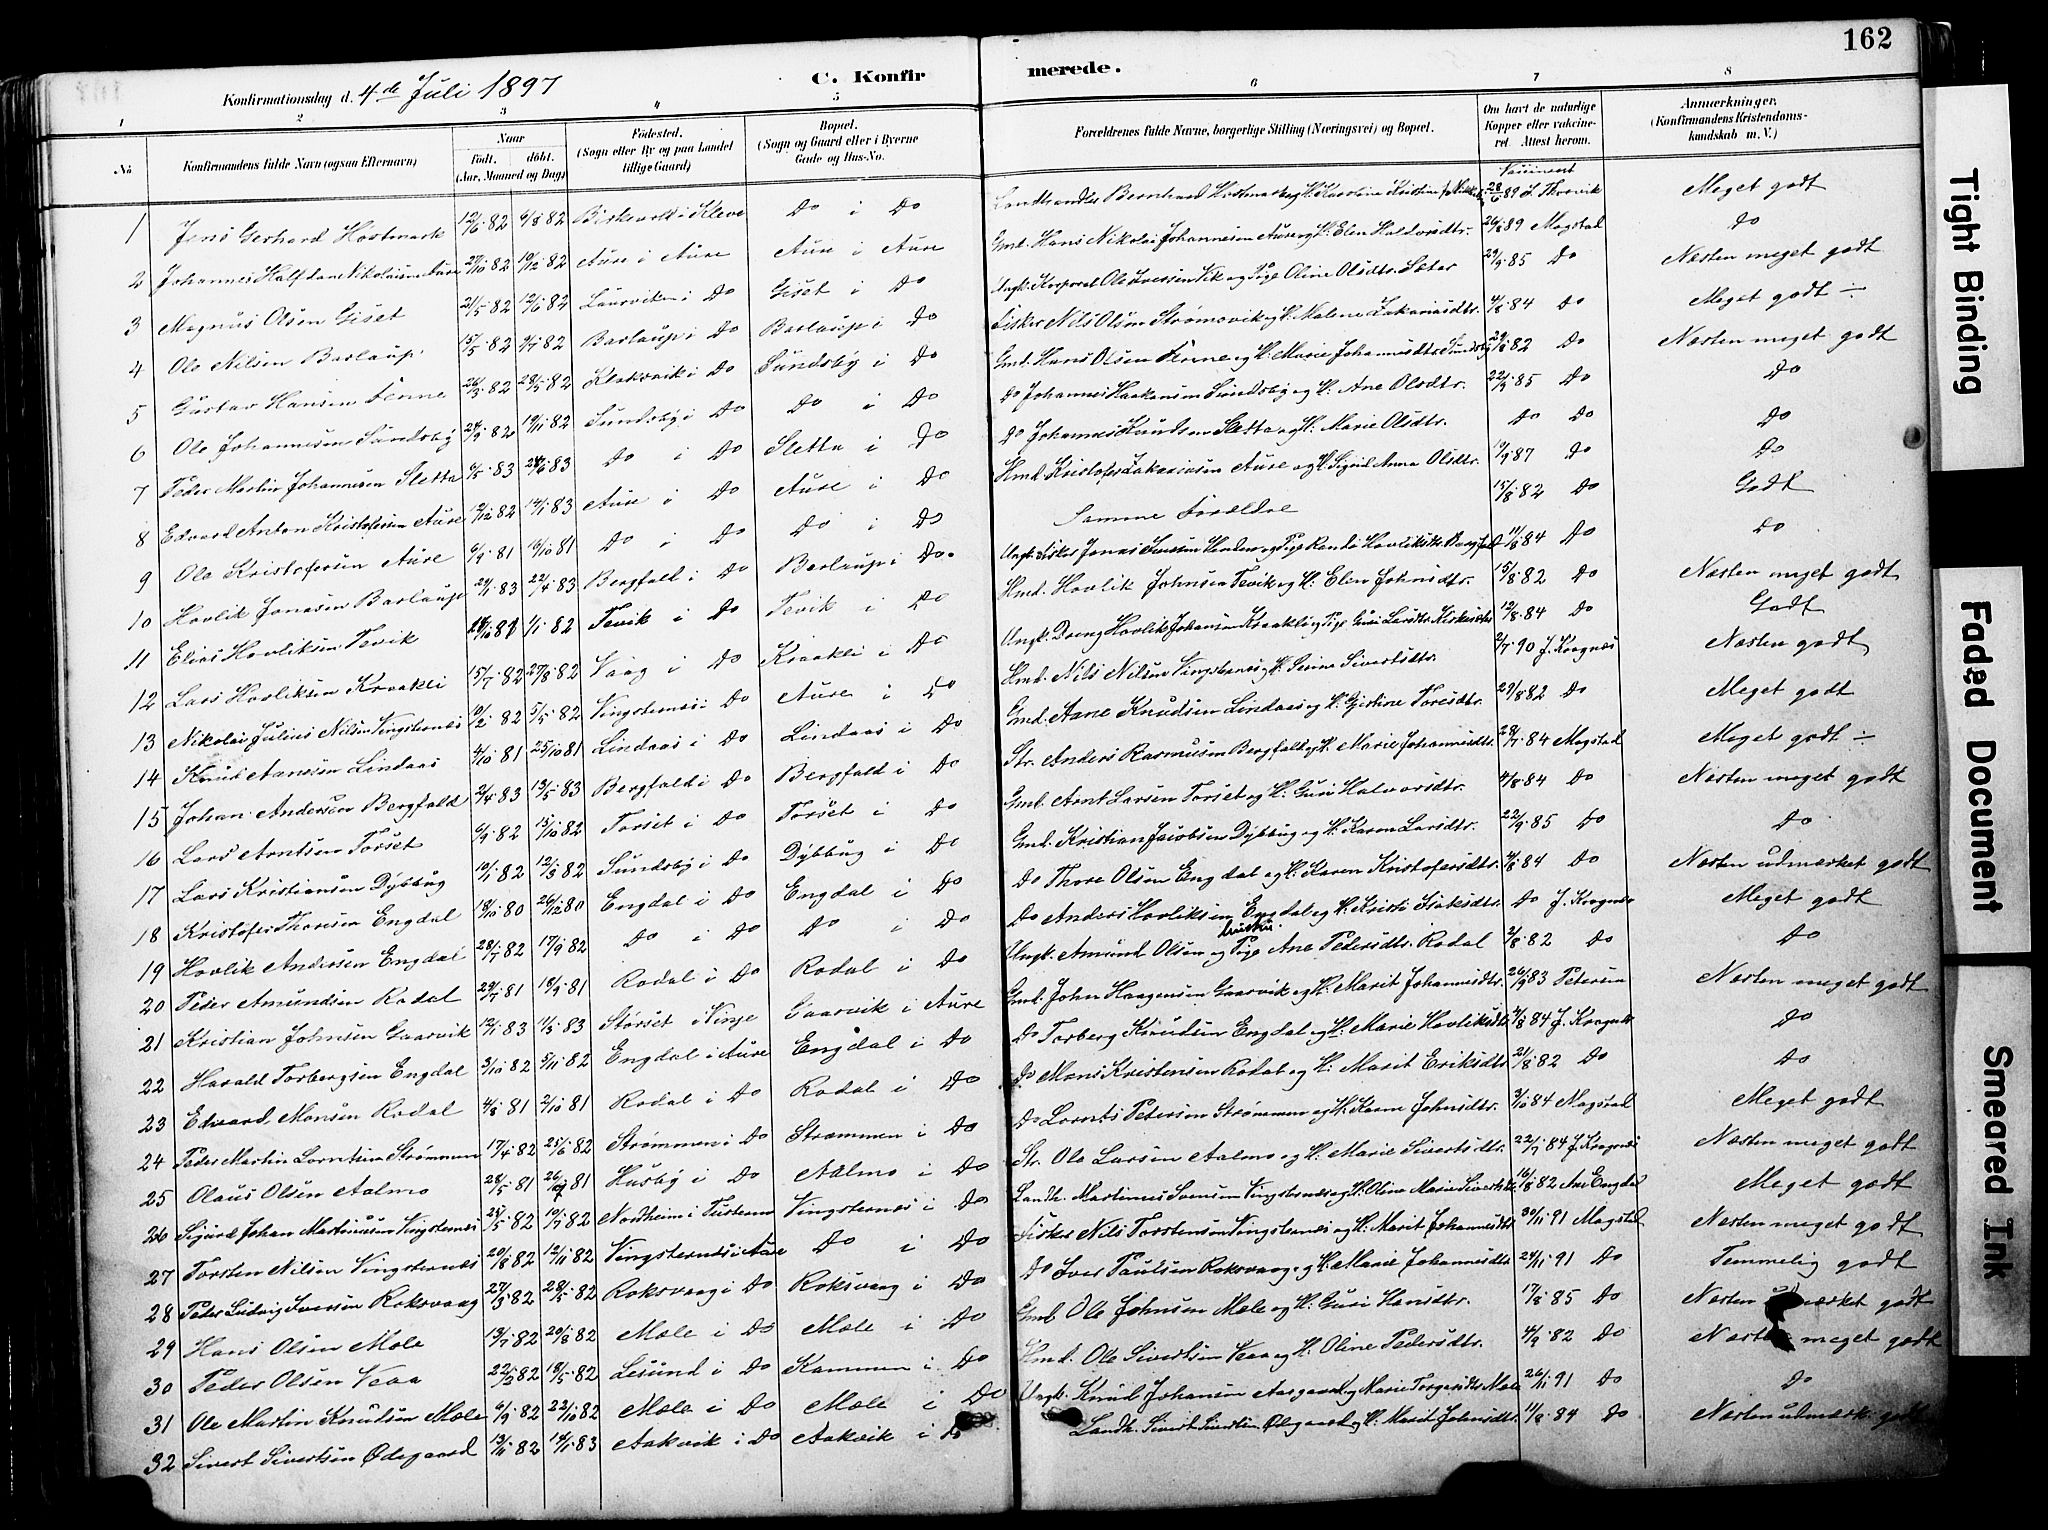 162
Konfirmationsdag d. 4de Juli 1897
C. Konfirmerede.
1 2 3 4 5 6 7 8
No
Konfirmandens fulde Navn (ogsaa Efternavn)
Naar født. døbt. (Aar, Maaned og Dag)
Fødested. (Sogn eller By og paa Landet tillige Gaard)
Bopæl. (Sogn og Gaard eller i Byerne Gade og Hus-No.
Forældrenes fulde Navne, borgerlige Stilling (Næringsvei) og Bopæl.
Om havt de naturlige Kopper eller vakcineret. Attest herom.
Anmærkninger. (Konfirmandens Kristendomskundskab m. V.)
1 Jens Gerhard Hostmark 12/6 82 6/8 82 Do i Do Meget godt
2 Johannes Halfdan Nikolaisen Aure 27/10 82 10/12 82 Aure i Aure Aure i Aure Gmd. Hans Nikolai Johannesen Aure og H. Elen Haldorsdtr. 26/8 89 Magstad Do
3 Magnus Olsen Giset 21/5 82 12/6 82 Laurvik i Do Giset i Do Ungk. Korporal Ole Iversen Vik og Pige Oline Olsdtr. Sæter 29/9 85 Do Næsten meget godt
4 Ole Nilsen Barlaup 15/5 82 9/7 82 Barlaup i Do Barlaup i Do Fisker Nils Olsen Strømsvik og H. Malene Zakariasdtr. 4/8 84 Do Meget godt ÷
5 Gustav Hansen Finne 26/3 82 28/5 82 Klaksvik i Do Sundsbø i Do Gmd. Hans Olsen Finne og H. Marie Johannesdtr. Sundsbø 29/8 82 Do Næsten meget godt
6 Ole Johannesen Sundsbø 24/9 82 19/11 82 Sundsbø i Do Do i Do Do Johannes Haakensen Sundsbø og H. Ane Olsdtr. 22/9 85 Do Do
7 Peder Martin Johannesen Sletta 6/5 83 24/6 83 Do i Do Sletta i Do Do Johannes Knudsen Sletta og H. Marie Olsdtr. Do Do Do
8 Edvard Anton Kristofersen Aure 12/12 82 14/1 83 Aure i Do Aure i Do Hmd. Kristofer Zakariasen Aure og H. Sigrid Anna Olsdtr. 19/9 87 Do Do
9 Ole Kristofersen Aure 6/9 81 16/10 81 Do i Do Do i Do Samme Forældre 15/8 82 Do Godt
10 Hovlik Jonasen Barlaup 29/1 83 22/4 83 Bergfald i Do Barlaup i Do. 11/8 84 Do Do
11 Elias Hovliksen Tevik 1/1 82 Tevik i Do Tevik i Do Hmd. Hovlik Johnsen Tevik og H. Elen Johnsdtr. 15/8 82 Do Næsten meget godt
12 Lars Hovliksen Kraakli 15/7 82 27/8 82 Vaag i Do Kraakli i Do Ungk. Dreng Hovlik Johansen Kraakli og Pige Guri Larsdtr. 12/8 84 Do Godt
13 Nikolai Julius Nilsen Vingsternes 10/2 82 5/5 82 Vingsternes i Do Aure i Do Hmd. Nils Nilsen Vingsternes og H. Serine Sivertsdtr. 2/7 90 J. Kragnæs Næsten godt
14 Knud Aanesen Lindaas 4/10 81 25/10 81 Lindaas i Do Lindaas i Do Gmd. Aane Knudsen Lindaas og H. Gjertine Toresdtr. 29/8 82 Do Meget godt
15 Johan Andersen Bergfald 2/4 83 13/5 83 Bergfald i Do Bergfald i Do Str. Anders Rasmusen Bergfald og H. Marie Johannesdtr. 28/7 84 Magstad Meget godt ÷
16 Lars Arntsen Torset 6/9 82 15/10 82 Torset i Do Torset i Do Gmd. Arnt Larsen Torset og H. Guri Halvorsdtr. 4/8 84 Do Næsten meget godt
17 Lars Kristiansen Dybbug 10/1 82 12/3 82 Sundsbø i Do Dybbug i Do Gmd. Kristian Jacobsen Dybbug og H. Karen Larsdtr. 22/9 85 Do Do
18 Kristofer Thoresen Engdal 18/10 80 26/12 80 Engdal i Do Engdal i Do Do Thore Olsen Engdal og H. Karen Kristofersdtr. 4/8 84 Do Næsten udmærket godt
19 Hovlik Andersen Engdal 28/7 82 17/9 82 Do i Do Do i Do Do Anders Hovliksen Engdal og H. Kristi Isaksdtr. Do J. Kragnæs Meget godt
20 Peder Amundsen Rodal 29/7 81 18/9 81 Rodal i Do Rodal i Do Ungk. Amund Olsen og Pige Ane Pedersdtr. Rodal 2/8 82 Do Do
21 Kristian Johnsen Gaarvik 12/1 83 11/3 83 Størset i Vinje Gaarvik i Aure Gmd. John Haagensen Gaarvik og H. Marit Johannesdtr. 26/9 83 Petersen Næsten meget godt
22 Harald Torbergsen Engdal 3/10 82 5/11 82 Engdal i Aure Engdal i Do Do Torberg Knudsen Engdal og H. Marie Hovliksdtr. 4/8 84 J. Kragnæs Do
23 Edvard Monsen Rodal 4/8 81 2/10 81 Rodal i Do Rodal i Do Do Mons Kristensen Rodal og H. Marit Eriksdtr. 21/8 82 Do Do
24 Peder Martin Lorntsen Strømmen 17/4 82 25/6 82 Strømmen i Do Strømmen i Do Do Lornts Petersen Strømmen og H. Karen Johnsdtr. 3/10 84 Magstad Meget godt
25 Olaus Olsen Aalmo 28/5 81 26/7 81 Husby i Do Aalmo i Do Str. Ole Larsen Aalmo og H. Marie Sivertsdtr. 22/7 84 J. Kragnæs Næsten meget godt
26 Sigurd Johan Martinusen Vingsternes 25/5 82 10/7 82 Nordheim i Tusteren Vingsternes i Do Landh. Martinus Svensen Vingsternes og H. Oline Marie Sivertsdtr. 16/8 82 Ane Engdal Meget godt
27 Torsten Nilsen Vingsternes 20/8 82 12/11 82 Vingsternes i Aure Do i Do Fisker Nils Torstensen Vingsternes og H. Marit Johannesdtr. 30/11 91 Magstad Næsten meget godt
28 Peder Ludvig Iversen Roksvaag 27/3 82 28/5 82 Roksvaag i Do Roksvaag i Do Do Iver Paulsen Roksvaag og H. Marie Johannesdtr. 24/11 91 Do Temmelig godt
29 Hans Olsen Mæle 13/7 82 20/8 82 Mæle i Do Mæle i Do Gmd. Ole Johnsen Mæle og H. Guri Hansdtr. 17/8 85 Do Næsten udmærket godt
30 Peder Olsen Veaa 22/2 82 18/5 82 Lesund i Do Kammen i Do Hmd. Ole Sivertsen Veaa og H. Oline Pedersdtr. 4/9 82 Do Næsten meget godt
31 Ole Martin Knudsen Mæle 6/9 82 22/10 82 Mæle i Do Mæle i Do Ungk. Knud Johansen Aasgaard og Marie Torgersdtr. Mæle 26/11 91 Do Do
32 Sivert Sivertsen Ødegaard 13/11 82 14/1 83 Aakvik i Do Aakvik i Do Landh. Sivert Sivertsen Ødegaard og H. Marit Johnsdtr. 11/8 84 Do Næsten udmærk. godt
Tight Binding
Faded Document
Smeared Ink